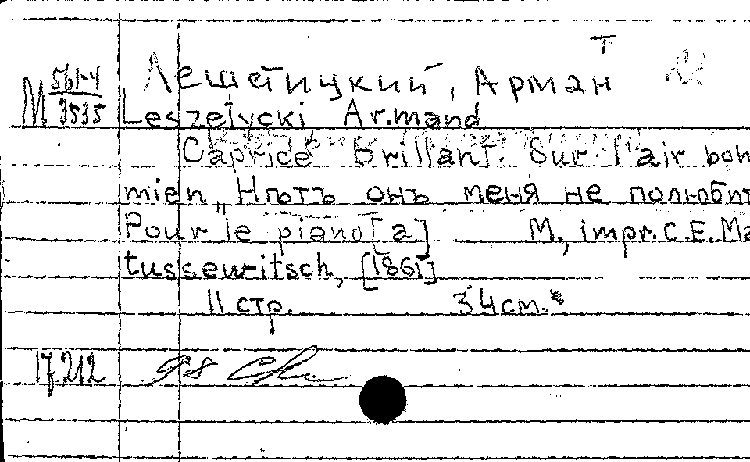 Т
Лешетицкий, Арман
М 561-4
3535
Leszetycki Ar.mand
Caprice Brillant. Sur l'air boh
mien „Нѣтъ онъ меня не полюбит
Pour le piano[a] М., impr.C.E.Ma
tussewitsch, [1861]
11 стр. 34см.
17212